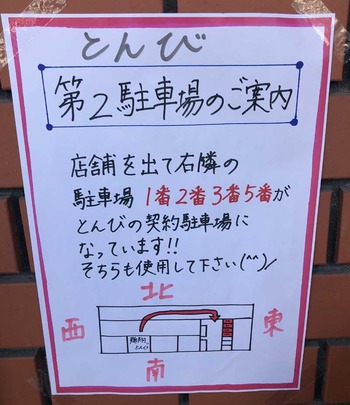 とんび
第2駐車場のご案内
店舗を出て右隣の
駐車場 1番2番3番5番が
とんびの契約駐車場に
なっています!!
そちらも使用して下さい(^^)/
北
西
東
とんび
南